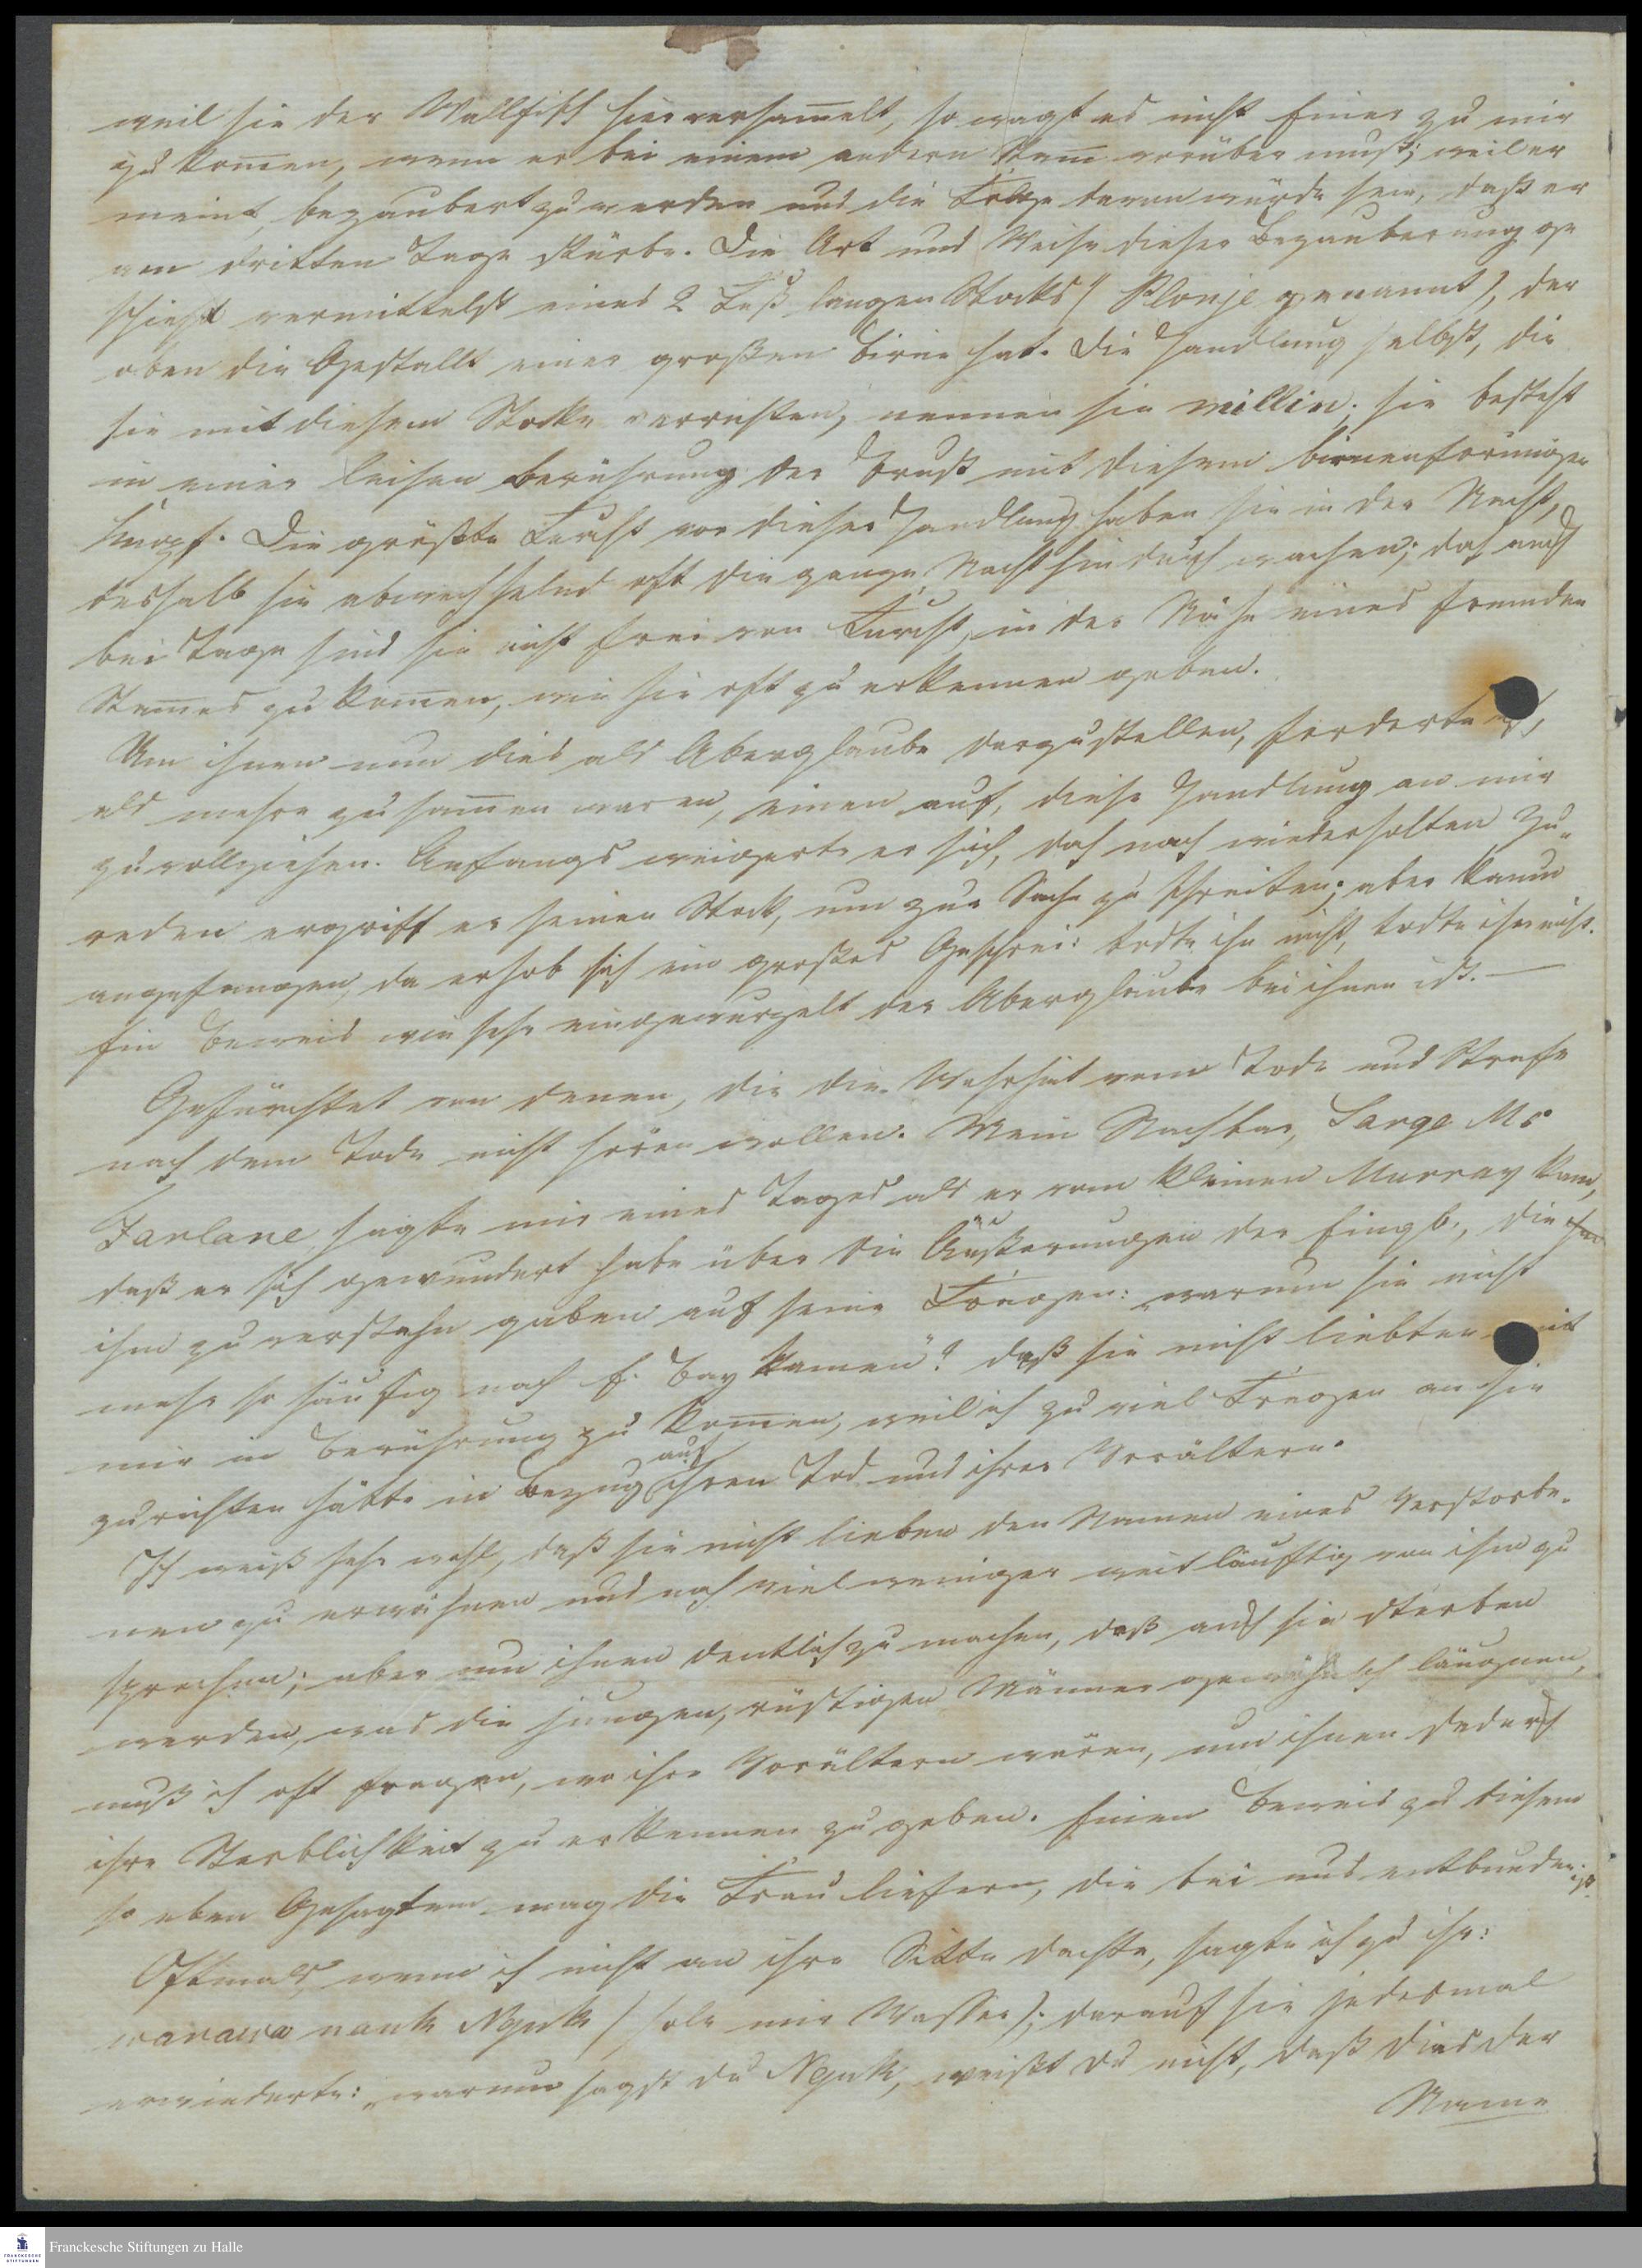 weil sie der Wallfisch hier versam̅elt, so wagt es nicht Einer zu mir
zu kom̅en, wenn er bei einem andern Stam̅ vorüber muß; weil er
meint, bezaubert zu werden und die Folge davon würde sein, daß er
am dritten Tage stürbe. Die Art und Weise dieser Bezauberung ge
schieht vermittelst eines 2 Fuß langen Stocks (Plonje genannt), der
oben die Gestallt einer großen Birne hat. Die Handlung selbst, die
sie mit diesem Stocke verrichten, nennen sie millin; sie besteht
in einer leisen Berührung der Brust mit diesem birnenförmigen
Knopf. Die größte Furcht vor dieser Handlung haben sie in der Nacht,
deshalb sie abwechselnd oft die ganze Nacht hindurch wachen; doch auch
bei Tage sind sie nicht frei von Furcht, in der Nähe eines fremden
Stam̅es zu kom̅en, wie sie oft zu erkennen geben.
Um ihnen nun dies als Aberglaube darzustellen, forderte ich,
als mehre zusam̅en waren, einen auf, diese Handlung an mir
zu vollziehen. Anfangs weigerte er sich, doch nach wiederholten Zu-
reden ergriff er seinen Stock, um zur Sache zu schreiten; aber kaum
angefangen, da erhob sich ein großes Geschrei: todte ihn nicht, todte ihn nicht.
Ein Beweis wie sehr eingewurzelt der Aberglaube bei ihnen ist. —
Gefürchtet von denen, die die Wahrheit vom Tode und Strafe
nach dem Tode nicht hören wollen. Mein Nachbar, Sarge Mc
Farlane sagte mir eines Tages als er vom kleinen Murray kam,
daß er sich gewundert habe über die Äußerungen der Eingb., die
ihm zu verstehn gaben auf seine Fragen: „warum sie nicht
mehr so häufig nach E. Bay kamen"? daß sie nicht liebten mit
mir in Berührung zu kom̅en, weil ich zu viel Fragen an sie
zu richten hätte in Bezug auf ihren Tod und ihrer Vorältern.
Ich weiß sehr wohl, daß sie nicht lieben den Namen eines Verstorbe-
nen zu erwähnen und noch viel weniger weitläuftig von ihm zu
sprechen; aber um ihnen deutlich zu machen, daß auch sie sterben
werden, was die jungen, rüstigen Männer gewöhnlich läugnen,
muß ich oft fragen, wo ihre Vorältern wären, um ihnen dadurch
ihre Sterblichkeit zu erkennen zu geben. Einen Beweis zu diesem
so eben Gesagtem mag die Frau liefern, die bei uns entbunden ist.
Oftmals, wenn ich nicht an ihre Sitte dachte, sagte ich zu ihr:
warawa nank Nguk (hole mir Wasser); darauf sie jedesmal
erwiederte: „warum sagst du Nguk, weißt du nicht, daß dies der
Name
Franckesche Stiftungen zu Halle
FRANCKESCHE
STIFTUNGEN